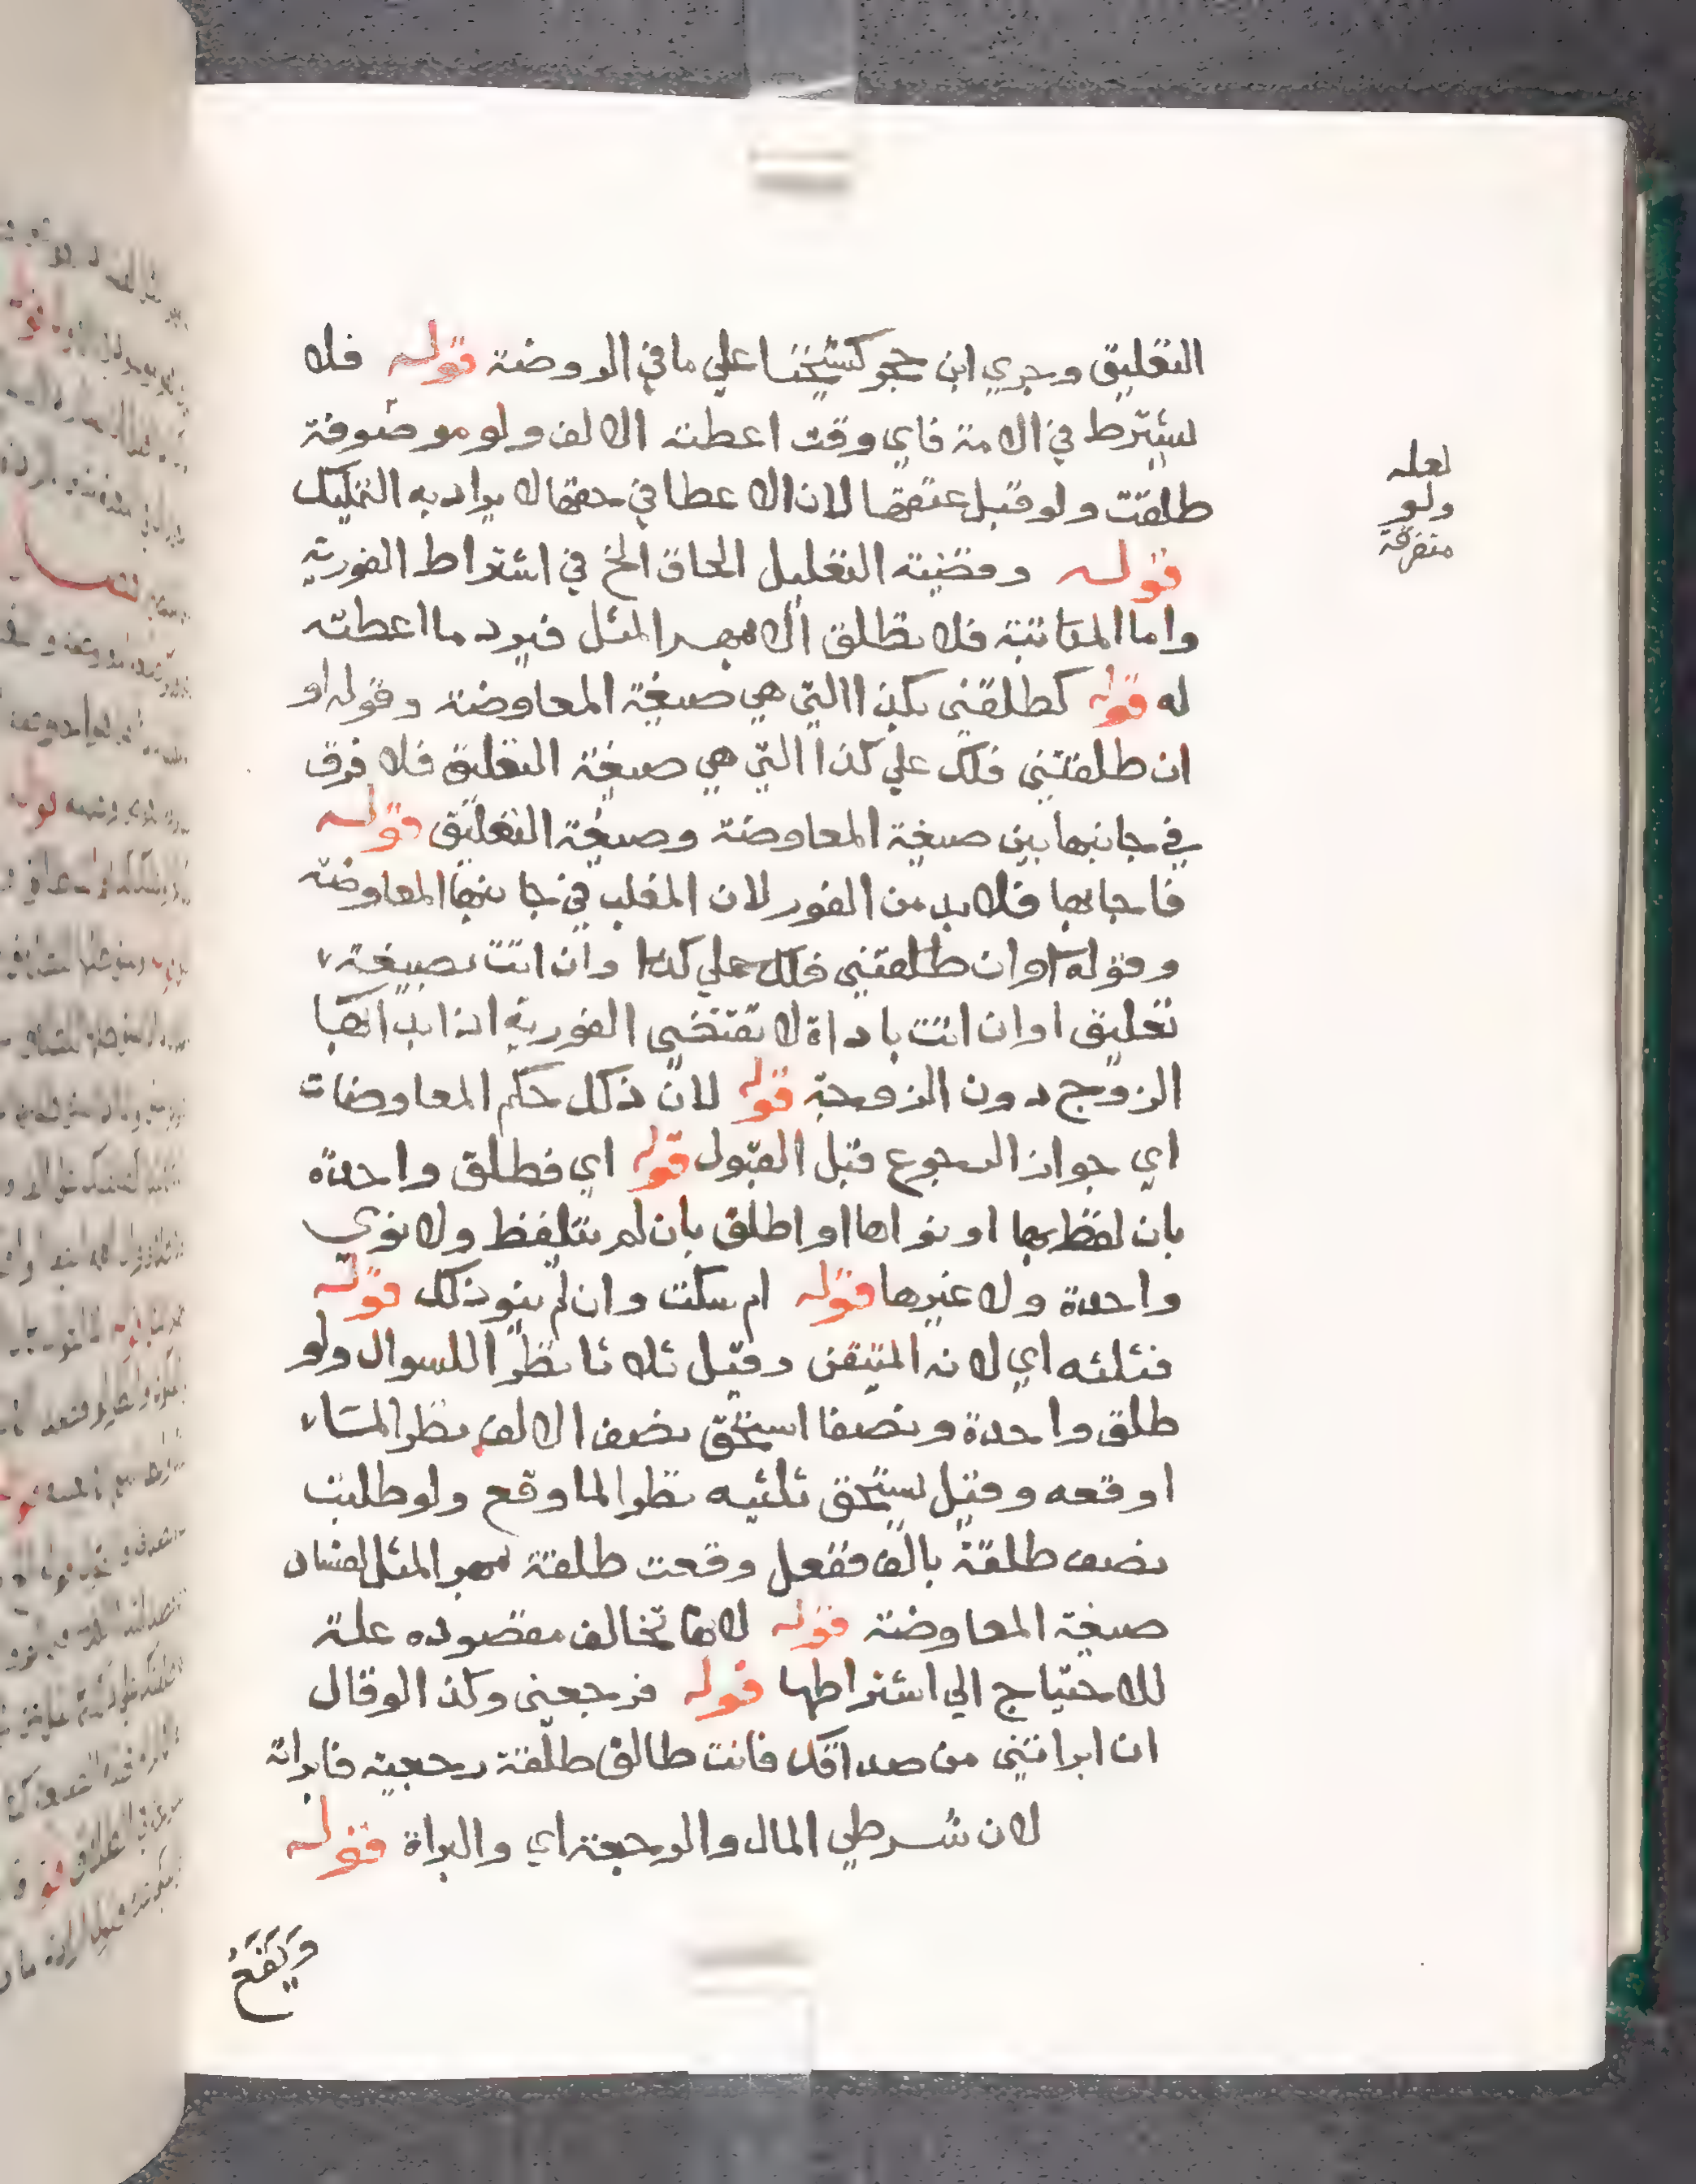 التعليق وجري ابن حجر كشيخنا علي ما في الروضة قوله فلا
يشترط في الامة فاي وقت اعطته الالف ولو موصوفة
طلقت ولو قبل عتقها لان الاعطا في حقها لا يراد به التمليك
قوله وقضية التعليل الحاق الخ في اشتراط الفورية
واما المكاتبة فلا تطلق الا بمهر المثل فيرد ما اعطته
له قوله كطلقني بكذا التي هي صيغة المعاوضة وقوله او
ان طلقتني فلك علي كذا التي هي صيغة التعليق فلا فرق
في جانبها بين صيغة المعاوضة وصيغة التعليق قوله
فاجابها فلا بد من الفور لان المغلب في جانبها المعاوضة
وقوله او ان طلقتني فلك علي كذا وان اتت بصيغة
تعليق او ان اتت باداة لا تقتضي الفورية اذا بدا بها
الزوج دون الزوجة قوله لان ذلك حكم المعاوضات
اي جواز الرجوع قبل القبول قوله اي فطلق واحدة
بان لفظ بها او نواها او اطلق بان لم يتلفظ ولا نوي
واحدة ولا غيرها قوله ام سكت وان لم ينو ذلك قوله
فثلثه اي لانه المتيقن وقيل ثلاثا نظرا للسوال ولو
طلق واحدة ونصفا استحق نصف الالف نظرا لما
اوقعه وقيل يستحق ثلثيه نظرا لما وقع ولو طلبت
نصف طلقة بالف ففعل وقعت طلقة بمهر المثل لفساد
صيغة المعاوضة قوله لانها تخالف مقصوده علة
للاحتياج الي اشتراطها قوله فرجعي وكذا لو قال
ان ابراتني من صداقك فانت طالق طلقة رجعية فابراته
لان شرطي المال والرجعة اي والبراة قوله
ويقع
لعله
ولو
متفرقة